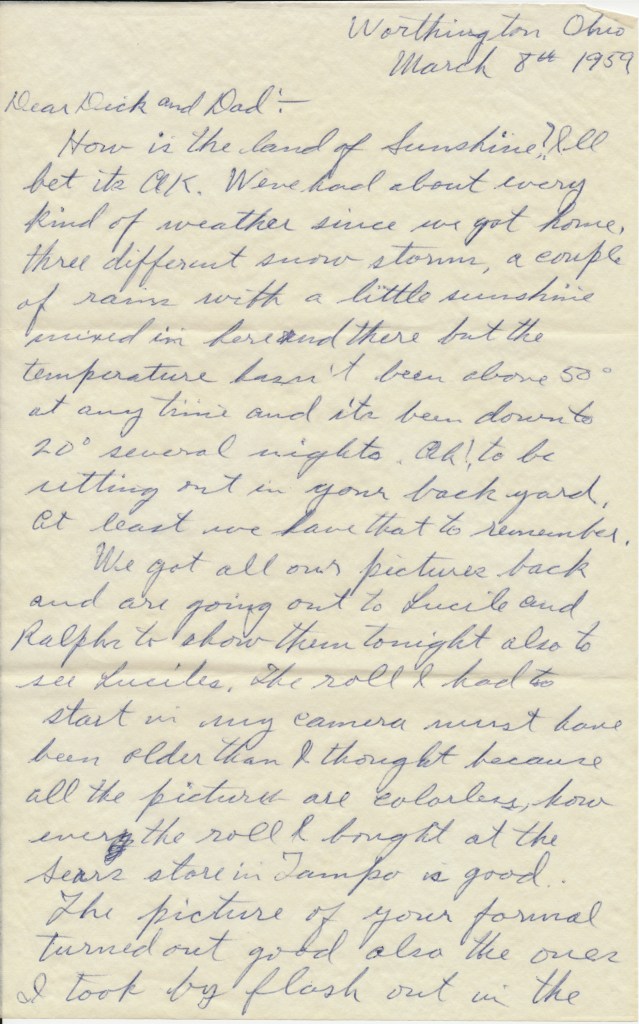 Worthington Ohio
March 8th 1959
Dear Dick and Dad:-
How is the land of Sunshine? I'll
bet its OK. Weve had about every
kind of weather since we got home,
three different snow storms, a couple
of rains with a little sunshine
mixed in here and there but the
temperature hasn't been above 50°
at any time and its been down to
20° several nights. Oh!, to be
sitting out in your back yard,
at least we have that to remember.
We got all our pictures back
and are going out to Lucile and
Ralphs to show them tonight also to
see Luciles. The roll I had to
start in my camera must have
been older than I thought because
all the pictures are colorless, how
every the roll I bought at the
Sears store in Tampo is good.
The picture of your formal
turned out good also the ones
I took by flash out in the